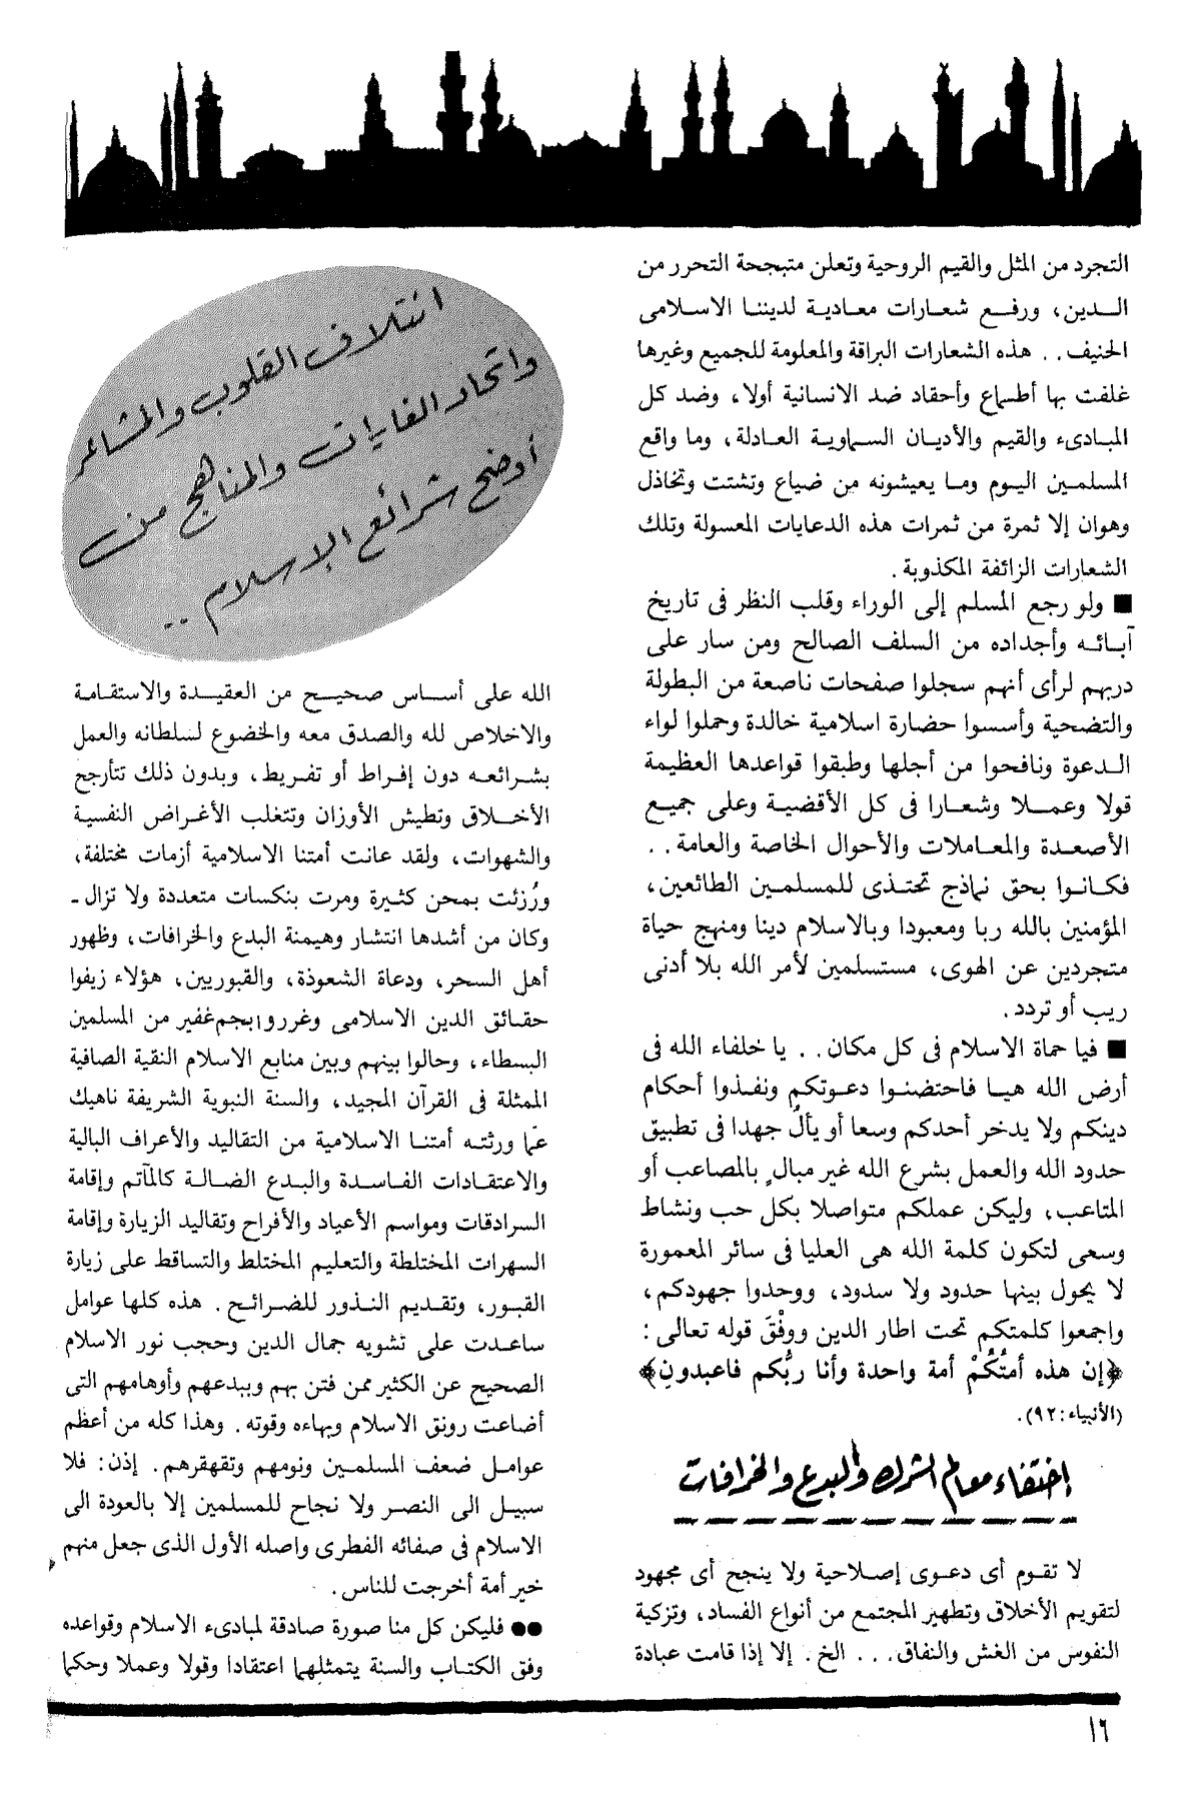 التجرد من المثل والقيم الروحية وتعلن متبجحة التحرر من
الــدين، ورفــع شعــارات معــادية لديننــا الاســلامى
الحنيف . . هذه الشعارات البراقة والمعلومة للجميع وغيرها
غلفت بها أطماع وأحقاد ضد الانسانية أولا، وضد كل
المبادىء والقيم والأديان السماوية العادلة، وما واقع
المسلمين اليوم وما يعيشونه من ضياع وتشتت وتخاذل
وهوان إلا ثمرة من ثمرات هذه الدعايات المعسولة وتلك
الشعارات الزائفة المكذوبة .
■ ولو رجع المسلم إلى الوراء وقلب النظر فى تاريخ
آبائه وأجداده من السلف الصالح ومن سار على
دربهم لرأى أنهم سجلوا صفحات ناصعة من البطولة
والتضحية وأسسوا حضارة اسلامية خالدة وحملوا لواء
الدعوة ونافحوا من أجلها وطبقوا قواعدها العظيمة
قولا وعملا وشعارا فى كل الأقضية وعلى جميع
الأصعدة والمعاملات والأحوال الخاصة والعامة . .
فكانوا بحق نماذج تحتذى للمسلمين الطائعين،
المؤمنين بالله ربا ومعبودا وبالاسلام دينا ومنهج حياة
متجردين عن الهوى، مستسلمين لأمر الله بلا أدنى
ريب أو تردد .
■ فيا حماة الاسلام فى كل مكان . . يا خلفاء الله فى
أرض الله هيا فاحتضنوا دعوتكم ونفذوا أحكام
دينكم ولا يدخر أحدكم وسعا أو يألُ جهدا فى تطبيق
حدود الله والعمل بشرع الله غير مبالٍ بالمصاعب أو
المتاعب، وليكن عملكم متواصلا بكل حب ونشاط
وسعى لتكون كلمة الله هى العليا فى سائر المعمورة
لا يحول بينها حدود ولا سدود، ووحدوا جهودكم،
واجمعوا كلمتكم تحت اطار الدين ووفْقَ قوله تعالى :
﴿إن هذه أمتُكُمْ أمة واحدة وأنا ربُّكم فاعبدونِ﴾
(الأنبياء : ٩٢).
إختفاء معالم الشرك والبدع والخرافات
لا تقوم أى دعوى إصلاحية ولا ينجح أى مجهود
لتقويم الأخلاق وتطهير المجتمع من أنواع الفساد، وتزكية
النفوس من الغش والنفاق . . . الخ . إلا إذا قامت عبادة
ائتلاف القلوب والمشاعر
واتحاد الغايات والمناهج من
أوضح شرائع الإسلام ..
الله على أساس صحيح من العقيدة والاستقامة
والاخلاص لله والصدق معه والخضوع لسلطانه والعمل
بشرائعه دون إفراط أو تفريط، وبدون ذلك تتأرجح
الأخلاق وتطيش الأوزان وتتغلب الأغراض النفسية
والشهوات، ولقد عانت أمتنا الاسلامية أزمات مختلفة،
ورُزئت بمحن كثيرة ومرت بنكسات متعددة ولا تزال -
وكان من أشدها انتشار وهيمنة البدع والخرافات، وظهور
أهل السحر، ودعاة الشعوذة، والقبوريين، هؤلاء زيفوا
حقائق الدين الاسلامى وغرروا بجم غفير من المسلمين
البسطاء، وحالوا بينهم وبين منابع الاسلام النقية الصافية
الممثلة فى القرآن المجيد، والسنة النبوية الشريفة ناهيك
عمّا ورثته أمتنا الاسلامية من التقاليد والأعراف البالية
والاعتقادات الفاسدة والبدع الضالة كالمآتم وإقامة
السرادقات ومواسم الأعياد والأفراح وتقاليد الزيارة وإقامة
السهرات المختلطة والتعليم المختلط والتساقط على زيارة
القبور، وتقديم النذور للضرائح . هذه كلها عوامل
ساعدت على تشويه جمال الدين وحجب نور الاسلام
الصحيح عن الكثير ممن فتن بهم وببدعهم وأوهامهم التى
أضاعت رونق الاسلام وبهاءه وقوته . وهذا كله من أعظم
عوامل ضعف المسلمين ونومهم وتقهقرهم . إذن : فلا
سبيل الى النصر ولا نجاح للمسلمين إلا بالعودة الى
الاسلام فى صفائه الفطرى واصله الأول الذى جعل منهم
خير أمة أخرجت للناس .
●● فليكن كل منا صورة صادقة لمبادىء الاسلام وقواعده
وفق الكتاب والسنة يتمثلهما اعتقادا وقولا وعملا وحكما
١٦